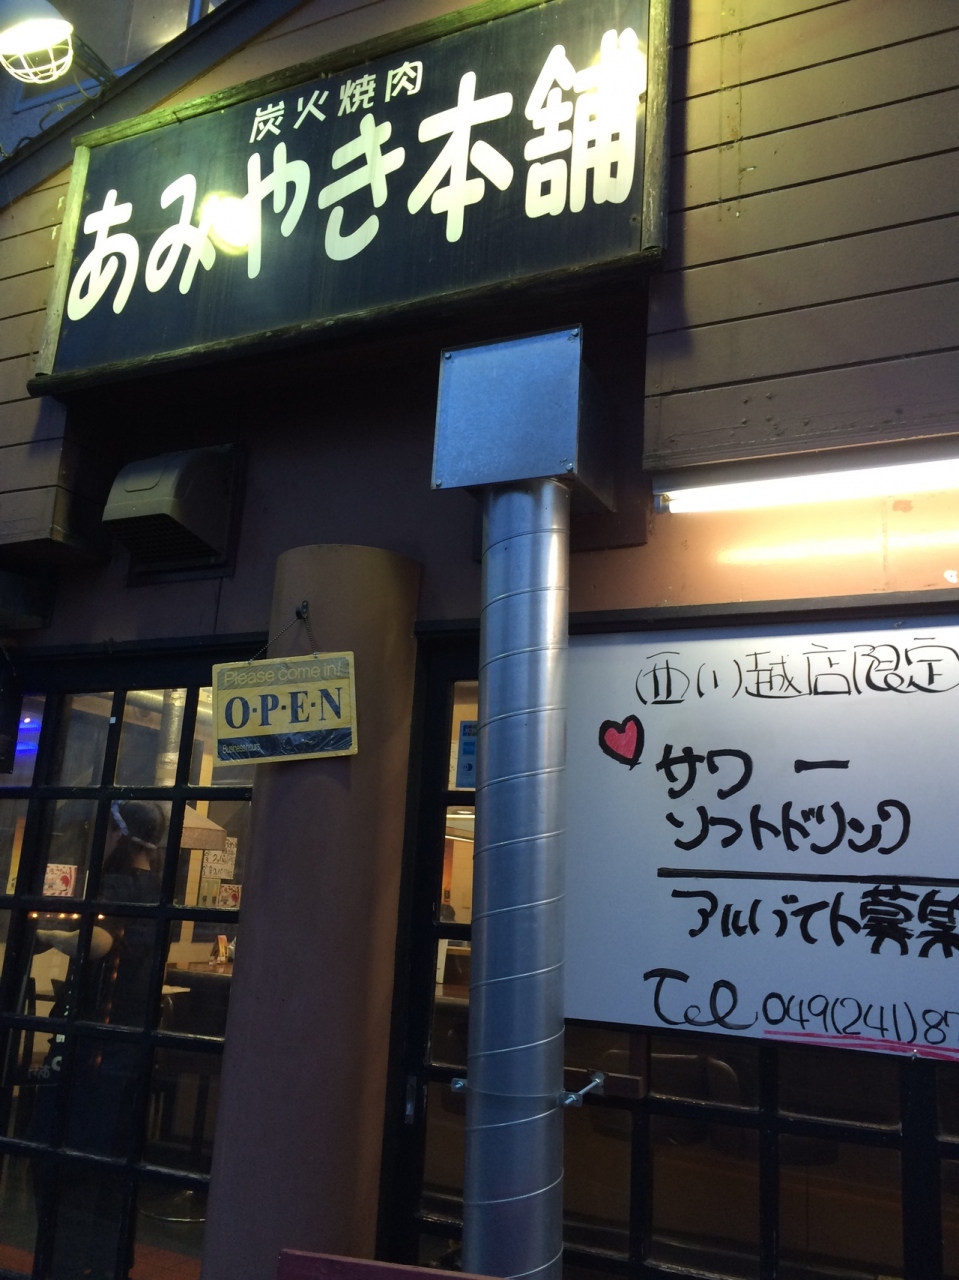 炭火焼肉
あみやき本舗
Please come in!
O·P·E·N
Business hours
西川越店限定
サワー
ソフトドリンク
アルバイト募集
Tel 049(241)87